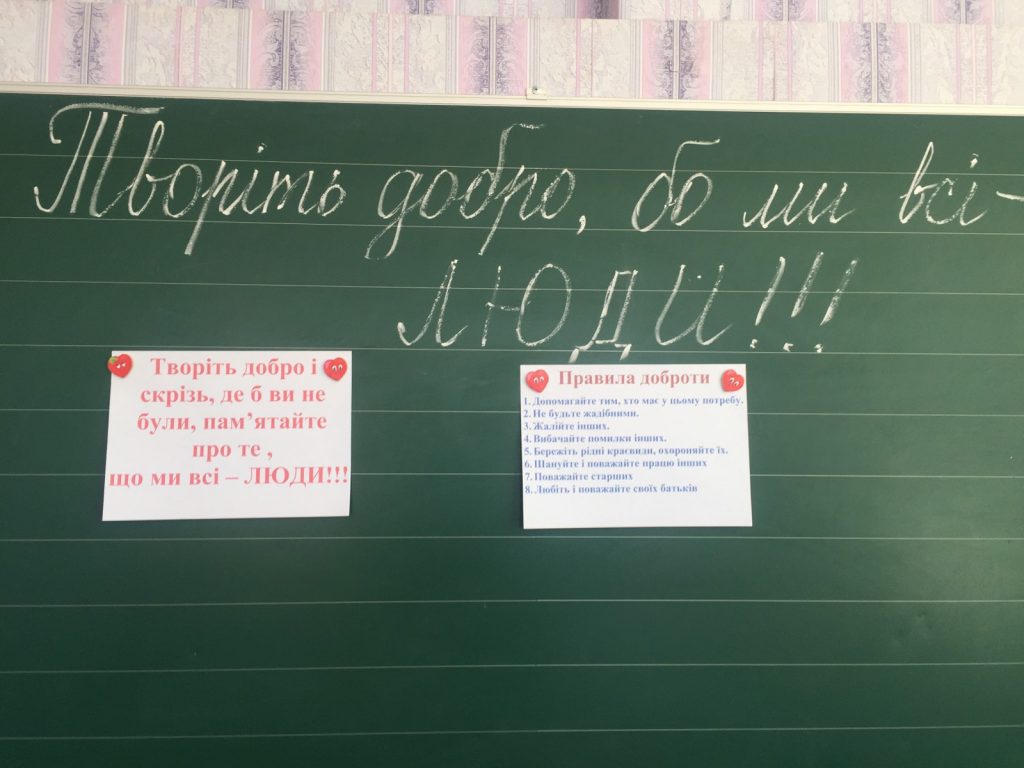 Творіть добро, бо ми всі –
ЛЮДИ!!!
Творіть добро і
скрізь, де б ви не
були, пам’ятайте
про те ,
що ми всі – ЛЮДИ!!!
Правила доброти
1. Допомагайте тим, хто має у цьому потребу.
2. Не будьте жадібними.
3. Жалійте інших.
4. Вибачайте помилки інших.
5. Бережіть рідні краєвиди, охороняйте їх.
6. Шануйте і поважайте працю інших
7. Поважайте старших
8. Любіть і поважайте своїх батьків